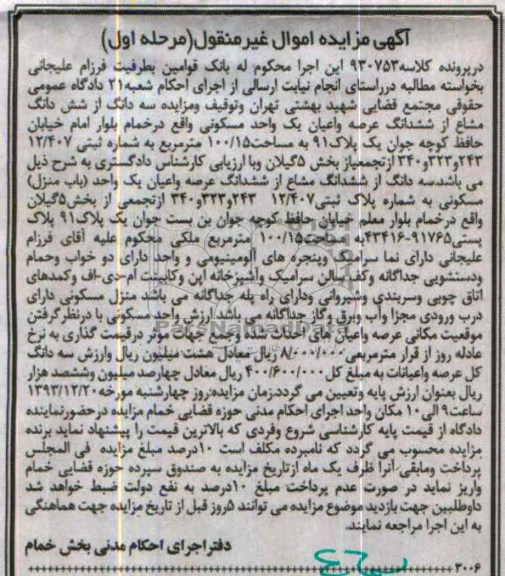 آگهی مزایده اموال غیر منقول(مرحله اول)
درپرونده کلاسه۹۳۰۷۵۳ این اجرا محکوم له بانک قوامین بطرفیت فرزام علیجانی
بخواسته مطالبه درراستای انجام نیابت ارسالی از اجرای احکام شعبه۲۱ دادگاه عمومی
حقوقی مجتمع قضایی شهید بهشتی تهران وتوقیف ومزایده سه دانگ از شش دانگ
مشاع از ششدانگ عرصه واعیان یک واحد مسکونی واقع درخمام بلوار امام خیابان
حافظ کوچه جوان یک پلاک۹۱ به مساحت۱۰۰/۱۵ مترمربع به شماره ثبتی ۱۲/۴۰۷
۲۴۳و۳۲۳و۳۴۰ ازتجمعیاز بخش ۵گیلان وبا ارزیابی کارشناس دادگستری به شرح ذیل
می باشدسه دانگ از ششدانگ مشاع از ششدانگ عرصه واعیان یک واحد (باب منزل)
مسکونی به شماره پلاک ثبتی۱۲/۴۰۷ ۲۴۳و۳۲۳و۳۴۰ ازتجمعی از بخش۵گیلان
واقع درخمام بلوار معلم خیابان حافظ کوچه جوان بن بست جوان یک پلاک۹۱ پلاک
پستی۹۱۷۶۵-۴۳۴۱۶به مساحت۱۰۰/۱۵ مترمربع ملکی محکوم علیه آقای فرزام
علیجانی دارای نما سرامیک وپنجره های آلومینیومی و واحد دارای دو خواب وحمام
ودستشویی جداگانه وکف سالن سرامیک وآشپزخانه اپن وکابینت ام-دی-اف وکمدهای
اتاق چوبی وسربندی وشیروانی ودارای راه پله جداگانه می باشد منزل مسکونی دارای
درب ورودی مجزا وآب وبرق وگاز جداگانه می باشد ارزش واحد مسکونی با درنظر گرفتن
موقعیت مکانی عرصه واعیان های احداث شده وجمع جهات موثر درقیمت گذاری به نرخ
عادله روز از قرار مترمربعی ۸/۰۰۰/۰۰۰ ریال معادل هشت میلیون ریال وارزش سه دانگ
کل عرصه واعیانات به مبلغ کل ۴۰۰/۶۰۰/۰۰۰ ریال معادل چهارصد میلیون وششصد هزار
ریال بعنوان ارزش پایه وتعیین می گرددزمان مزایده:روز چهارشنبه مورخه۱۳۹۳/۱۲/۲۰
ساعت۹ الی ۱۰ مکان واحد اجرای احکام مدنی حوزه قضایی خمام مزایده درحضورنماینده
دادگاه از قیمت پایه کارشناسی شروع وفردی که بالاترین قیمت را پیشنهاد نماید برنده
مزایده محسوب می گردد که نامبرده مکلف است ۱۰درصد مبلغ مزایده فی المجلس
پرداخت ومابقی آنرا ظرف یک ماه ازتاریخ مزایده به صندوق سپرده حوزه قضایی خمام
واریز نماید در صورت عدم پرداخت مبلغ ۱۰درصد به نفع دولت ضبط خواهد شد
داوطلبین جهت بازدید موضوع مزایده می توانند ۵روز قبل از تاریخ مزایده جهت هماهنگی
به این اجرا مراجعه نمایند.
دفتر اجرای احکام مدنی بخش خمام
۳۰۰۶
ParsNamadData